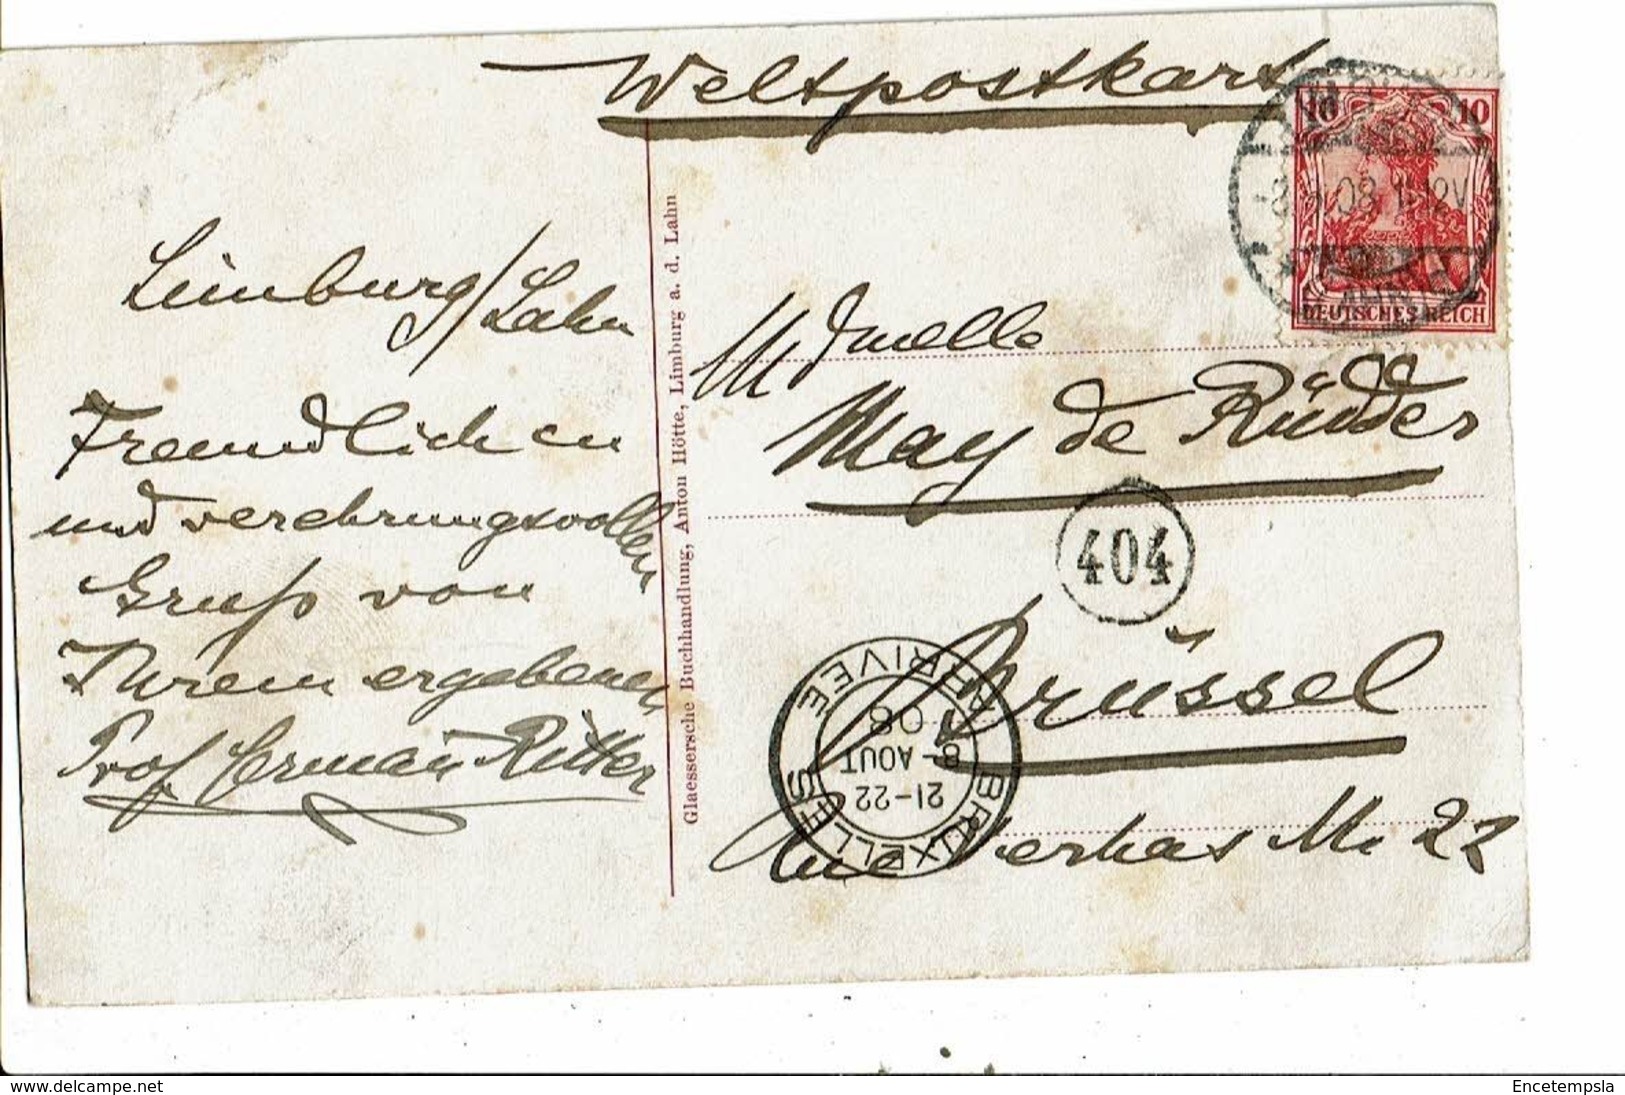 Weltpostkarte
10 10
DEUTSCHES REICH
08
Limburg/Lahn
Freundlichen
und verehrungsvollen
Gruß von
Ihrem ergebenen
Prof. Herman Ritter
Glaessersche Buchhandlung, Anton Hötte, Limburg a. d. Lahn
Mdmelle
May de Rüdder
404
Brüssel
BRUXELLES ARRIVEE
21-22
8-AOUT
08
22
www.delcampe.net
Encetempsla